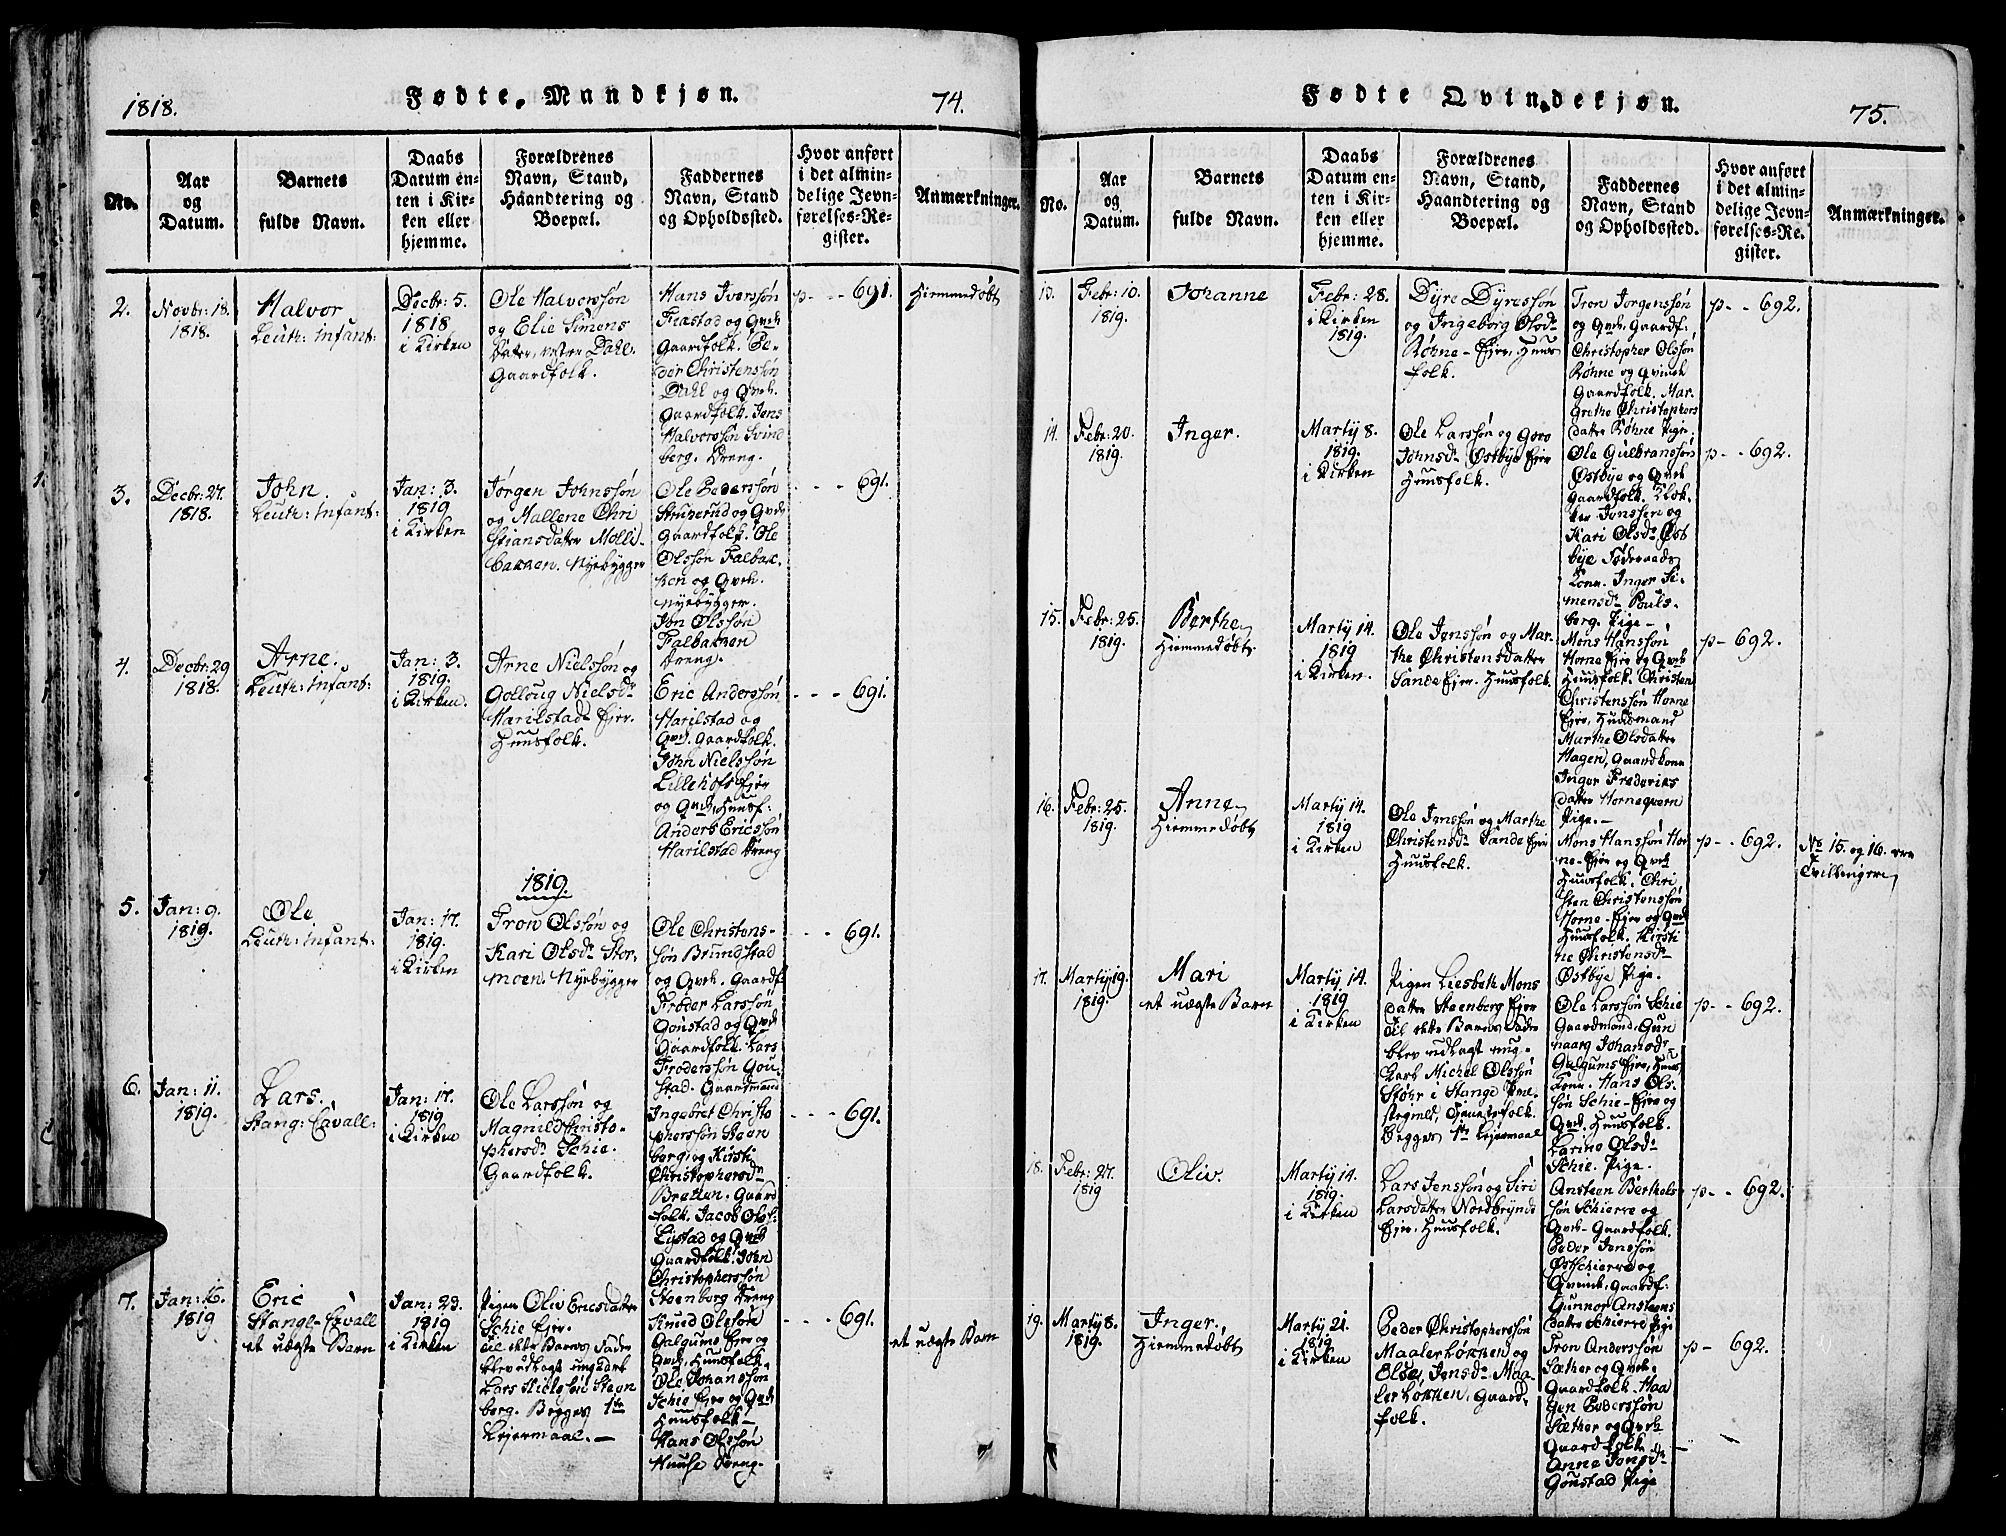 1818.
Fødte, Mandkjøn.
74.
No.
Aar
og
Datum.
Barnets
fulde Navn.
Daabs
Datum en-
ten i Kir-
ken eller
hjemme.
Forældrenes
Navn, Stand,
Haandtering og
Boepæl.
Faddernes
Navn, Stand
og Opholdssted.
Hvor anført
i det almin-
delige Jevn-
førelses-Re-
gister.
Anmærkninger.
2.
Novbr: 18.
1818.
Halvor
Leuth: Infant:
Decbr: 5.
1818
i Kirken
Ole Halvorssøn
og Elie Simens
Datter, Dahl
Gaardfolk.
Hans Iverssøn
Frastad og Qvek
Gaardfolk. Pe-
der Christenssøn
Dahl og Qvek
Gaardfolk. Jens
Halvorssøn Svind
berg. Dreng.
p- - - 691.
Hiemmedøbt
3.
Decbr: 27.
1818.
John.
Leuth: Infant:
Jan: 3.
1819
i Kirken
Jørgen Johnssøn
og Mallene Chri
stiansdatter Molli-
bakken. Nyebygger
Ole Pederssøn
Struperud og Qvek
Gaardfolk. Ole
Olssøn Falbak
ken og Qvek.
Nyebygger.
Jon Olssøn
Falbakken
Dreng.
- - - 691.
4.
Decbr: 29
1818.
Arne.
Leuth: Infant:
Jan: 3.
1819.
i Kirken.
Arne Nielssøn og
Golloug Nielsdr
Harilstad Ejer.
Huusfolk.
Eric Anderssøn
Harilstad og
Qvek. Gaardfolk.
John Nielssøn
Lillehofs Ejer
og Qvek, Huusf:
Anders Ericssøn
Harilstad Dreng
- - - 691.
1819.
5.
Jan: 9.
1819.
Ole
Leuth: Infant:
Jan: 17.
1819.
i Kirken
Tron Olssøn og
Kari Olsdr Stor-
moen. Nyebygger
Ole Christens-
søn Brundstad
og Qvek. Gaardf
Frøder Larssøn
Goustad og Qvek
Gaardfolk. Lars
Frøderssøn Gou-
stad. Gaardmand
- - - 691.
6.
Jan: 11.
1819.
Lars.
Stang: Cavall:
Jan: 17.
1819
i Kirken
Ole Larssøn og
Magnild Christo-
phersdr Schie.
Gaardfolk.
Ingebret Christo
pherssøn Steen
berg, og Kirsti
Christophersdr
Bratten. Gaard
folk. Jacob Olss:
Lystad og Qvek
Gaardfolk. John
Christopherssøn
Steenberg Dreng
- - - 691.
7.
Jan: 16.
1819
Eric
Stange-Cavall
et uægte Barn
Jan: 23.
1819
i Kirken
Pigen Oliv Ericsdatter
Schie Ejer.
Til dette Barns Fader
blev udlagt ungkarl
Lars Nielssøn Steen
berg. Begges 1ste
Lejermaal. -
Knud Olssøn
Galgums Ejer og
Qvek, Huusfolk.
Ole Johanssøn
Schie Ejer og Qvek
Huusfolk -
Hans Olssøn
Huuse Dreng.
- - - 691.
et uægte Barn
Fødte Qvindekjøn.
75.
No.
Aar
og
Datum.
Barnets
fulde Navn.
Daabs
Datum en-
ten i Kir-
ken eller
hjemme.
Forældrenes
Navn, Stand,
Haandtering og
Boepæl.
Faddernes
Navn, Stand
og Opholdssted.
Hvor anført
i det almin-
delige Jevn-
førelses-Re-
gister.
Anmærkninger.
13.
Febr: 10.
1819.
Johanne
Febr: 28.
i Kirken
1819.
Dyre Dyressøn
og Ingeborg Olsdr
Røhne - Ejer. Huus
folk.
Tron Jorgenssøn
og Qvek. Gaardf:
Christopher Olssøn
Røhne og Qvinde
Gaardfolk. Mar
grethe Christophers
datter Røhne Pige.
p- - 692.
14.
Febr: 20.
1819.
Inger.
Martij 8.
1819.
i Kirken
Ole Larssøn og Goro
Johnsdr Østbye Ejer
Huusfolk.
Ole Gulbranssøn
Østbye og Qvek
Gaardfolk. Klok
ker Jenssen og
Kari Olsdr Øst
bye Føderaads
Kone. Inger Si-
mensdr Pouls-
berg. Pige -
p- - 692.
15.
Febr: 25.
1819.
Berthe
Hiemmedøbt.
Martij 14.
1819
i Kirken.
Ole Jenssøn og Mar-
the Christensdatter
Sande Ejer. Huusfolk.
Mons Hanssøn
Horne Ejer og Qvek
Huusfolk. Christen
Christenssøn Horne
Ejer, Huusmand
Marthe Olsdatter
Hagen, Gaardkone
Inger Frederiks
datter Hornequern
Pige. -
p- 692.
16.
Febr: 25.
1819.
Anne
Hiemmedøbt
Martij 14.
1819
i Kirken
Ole Jenssøn og Marthe
Christensdr Sande Ejer
Huusfolk.
Mons Hanssøn Hor
ne - Ejer og Qvek
Huusfolk. Chri
sten Christenssøn
Horne - Ejer og Qvek
Huusfolk. Kirsti
ne Christensdr
Østbye Pige.
p- - 692.
No 15. og 16. ere
Tvillinger
17.
Martij 9.
1819.
Mari
et uægte Barn
Martij 14.
1819
i Kirken
Pigen Liesbeth Mons
datter Steenberg Ejer
Til dette Barns Fader
blev udlagt ung-
karl Michel Olssøn
Støhr i Stange Præ-
stegield, Tjenestefolk.
Begges 1ste Lejermaal
Ole Larssøn Schie
Gaardmand, Gun
naarg Johansdr
Galgums Ejer, Huus
Kone. Hans Ols-
søn Schie - Ejer og
Qvek. Huusfolk.
Larine Olsdr
Schie. Pige.
p- - 692.
18.
Febr: 27.
1819
Oliv.
Martij 14.
1819.
i Kirken
Lars Jenssøn og Siri
Larsdatter Nordbrynds
Ejer, Huusfolk.
Ansteen Berthels
søn Schierre og
Qvek - Gaardfolk.
Peder Jenssøn
Østschierre og
Qvinde, Gaardf:
Gunnor Ansteens
datter Schierre Pige
p- - 692.
19.
Martij 8.
1819.
Inger.
Hiemmedøbt
Martij 21.
1819
i Kirken
Peder Christopherssøn
Maalerløkken og
Olse Jensdr Maa-
lerløkken. Gaard
folk.
Tron Anderssøn
Sæther og Qvek.
Gaardfolk. Haa
gen Pederssøn
Sæther og Qvek
Gaardfolk. -
Anne Jensdr
Goustad Pige
p- 692.